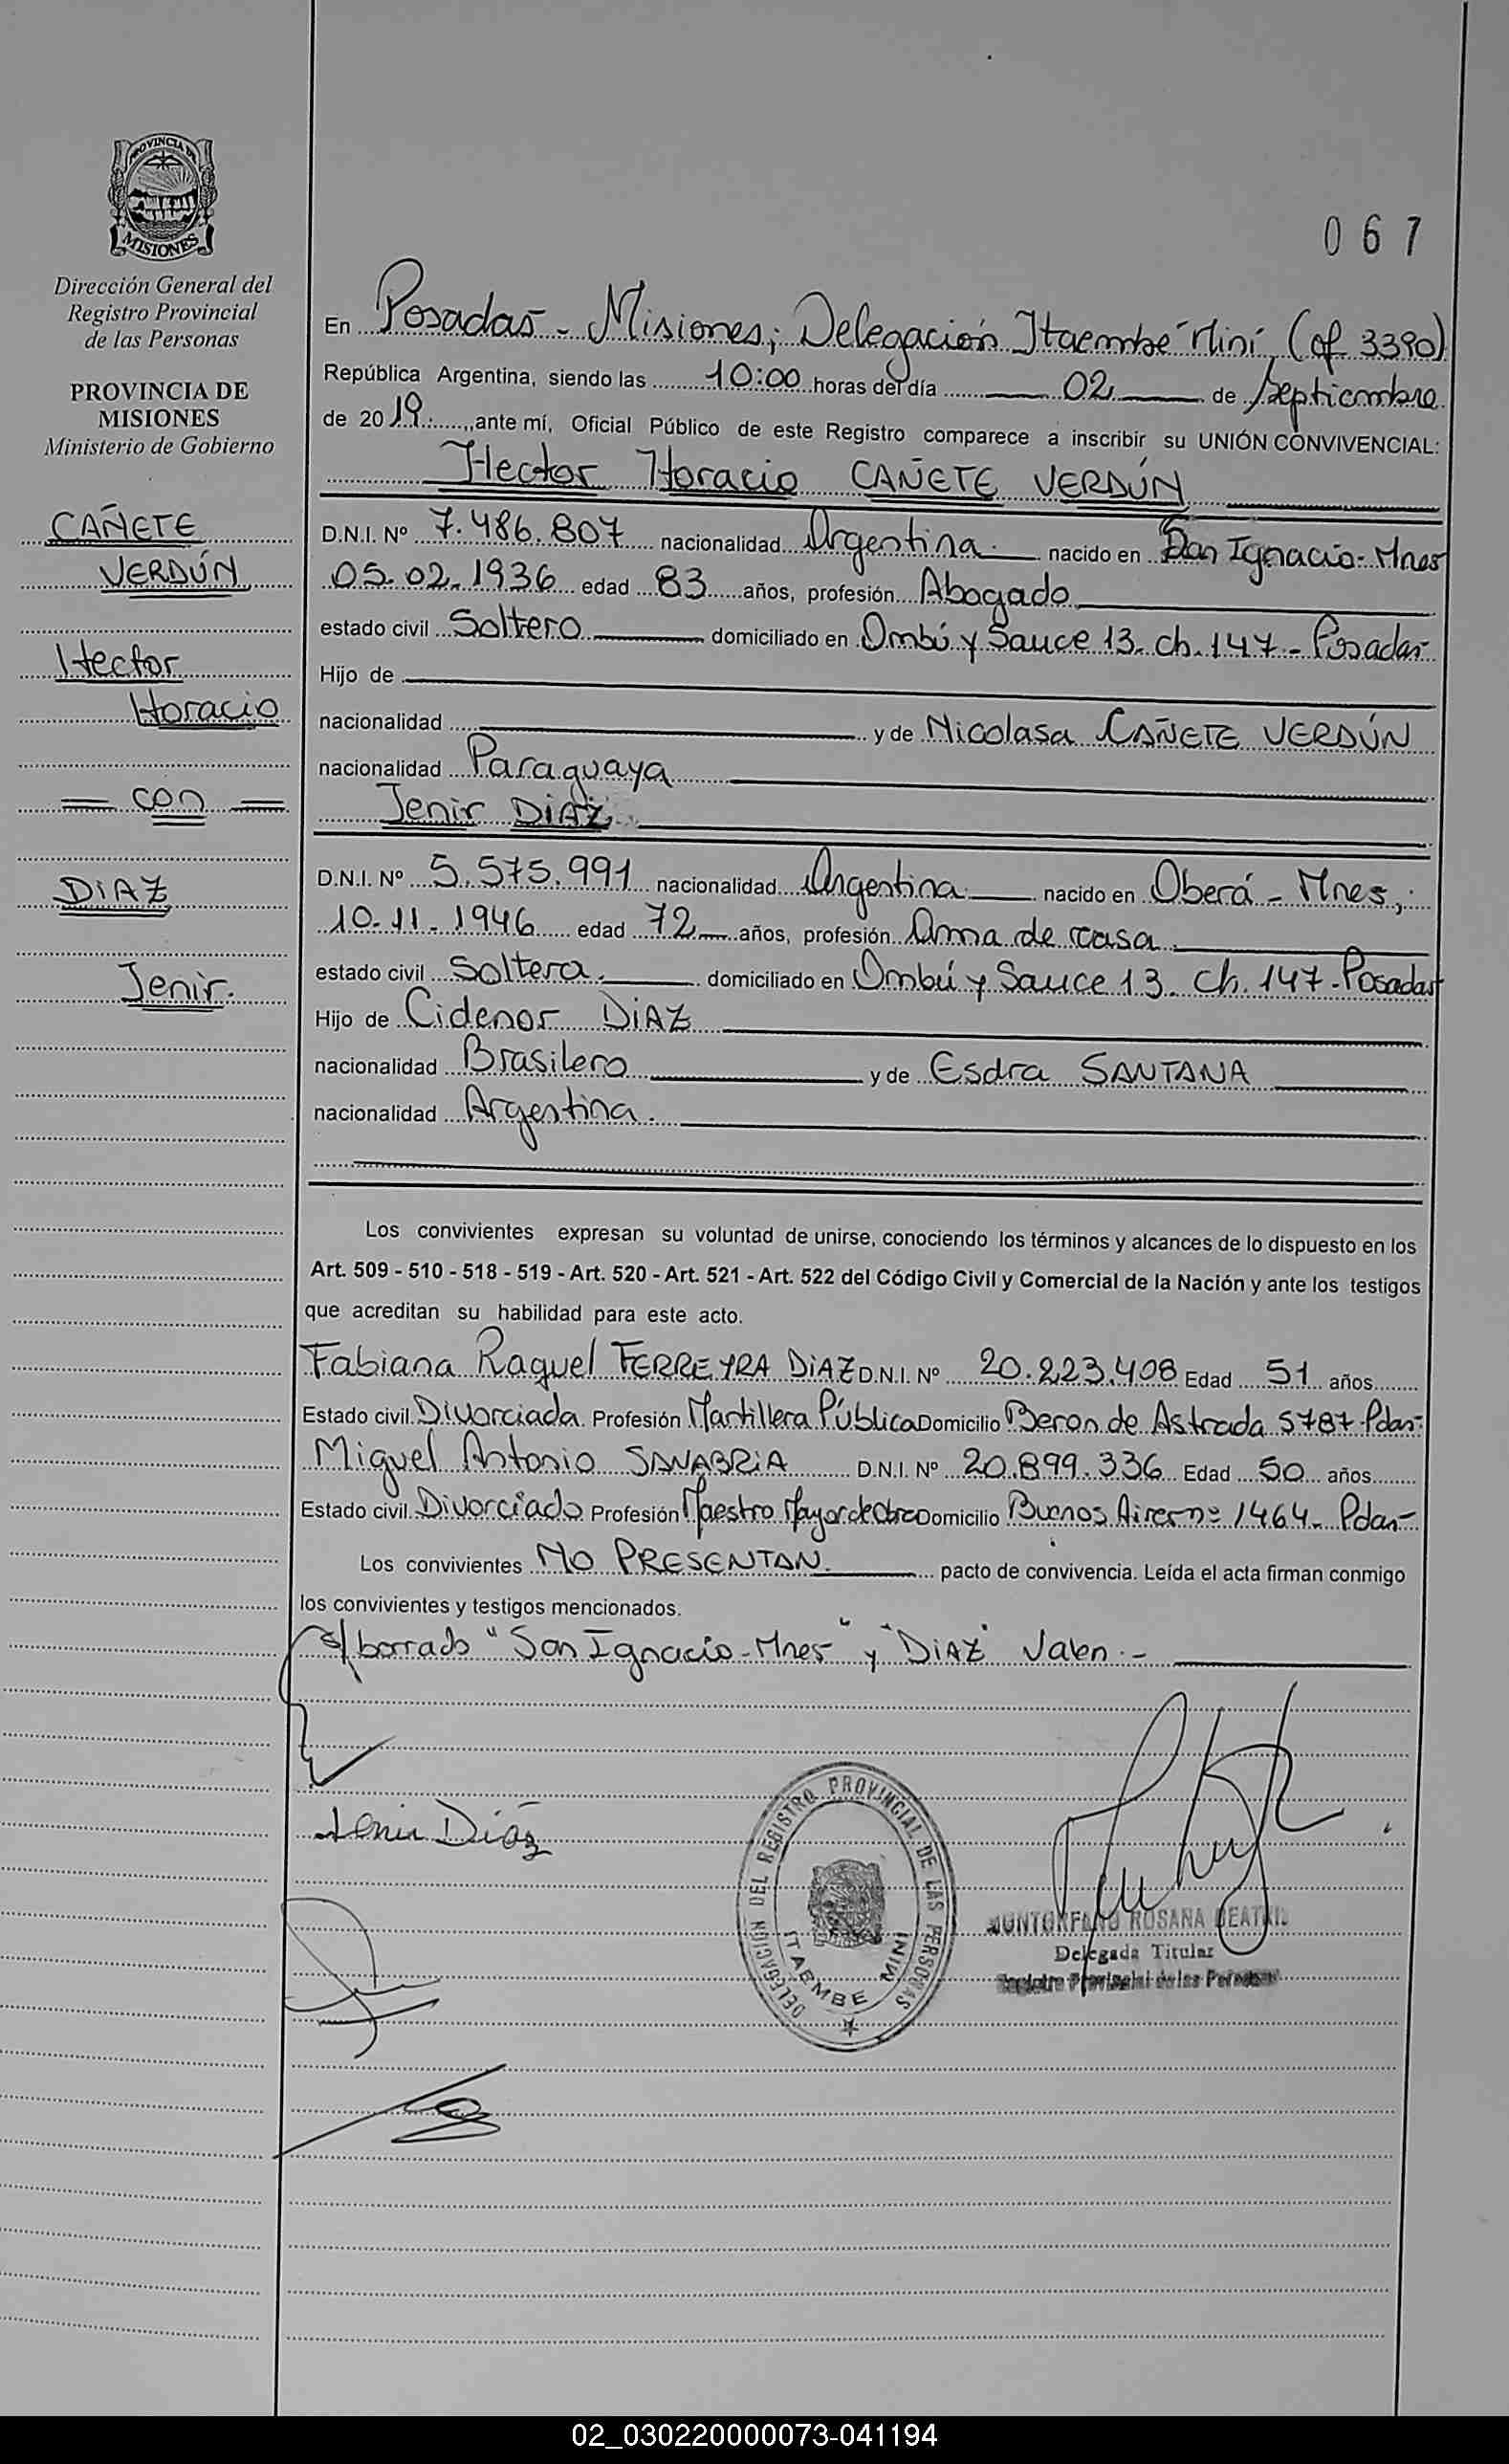 PROVINCIA DE
MISIONES
Dirección General del
Registro Provincial
de las Personas
PROVINCIA DE
MISIONES
Ministerio de Gobierno
CAÑETE
VERDÚN
Hector
Horacio
= con =
DIAZ
Jenir.
067
En Posadas - Misiones; Delegación Itaembé Miní, (of. 3390)
República Argentina, siendo las 10:00 horas del día 02 de Septiembre
de 2019, ante mí, Oficial Público de este Registro comparece a inscribir su UNIÓN CONVIVENCIAL:
Hector Horacio CAÑETE VERDÚN
D.N.I. Nº 7.486.807 nacionalidad Argentina. nacido en San Ignacio-Mnes
05.02.1936 edad 83 años, profesión Abogado
estado civil Soltero domiciliado en Ombú y Sauce 13. ch. 147 - Posadas-
Hijo de
nacionalidad y de Nicolasa CAÑETE VERDÚN
nacionalidad Paraguaya
Jenir DIAZ
D.N.I. Nº 5.575.991 nacionalidad Argentina. nacido en Oberá - Mnes,
10-11-1946 edad 72 años, profesión Ama de casa
estado civil Soltera. domiciliado en Ombú y Sauce 13. Ch. 147-Posadas
Hijo de Cidenor DIAZ
nacionalidad Brasilero y de Esdra SANTANA
nacionalidad Argentina.
Los convivientes expresan su voluntad de unirse, conociendo los términos y alcances de lo dispuesto en los
Art. 509 - 510 - 518 - 519 - Art. 520 - Art. 521 - Art. 522 del Código Civil y Comercial de la Nación y ante los testigos
que acreditan su habilidad para este acto.
Fabiana Raquel FERREYRA DIAZ D.N.I. Nº 20.223.408 Edad 51 años
Estado civil Divorciada Profesión Martillera Pública Domicilio Beron de Astrada 5787-Pdas-
Miguel Antonio SANABRIA D.N.I. Nº 20.899.336 Edad 50 años
Estado civil Divorciado Profesión Maestro Mayor de Obra Domicilio Buenos Aires nº 1464- Pdas-
Los convivientes NO PRESENTAN. pacto de convivencia. Leída el acta firman conmigo
los convivientes y testigos mencionados.
s/borrado "San Ignacio-Mnes" y "DIAZ" Valen.-
Jenir Díaz
DELEGACIÓN DEL REGISTRO PROVINCIAL DE LAS PERSONAS
ITAEMBE MINI
ROSANA BEATRIZ
Delegada Titular
Registro Provincial de las Personas
02_030220000073-041194